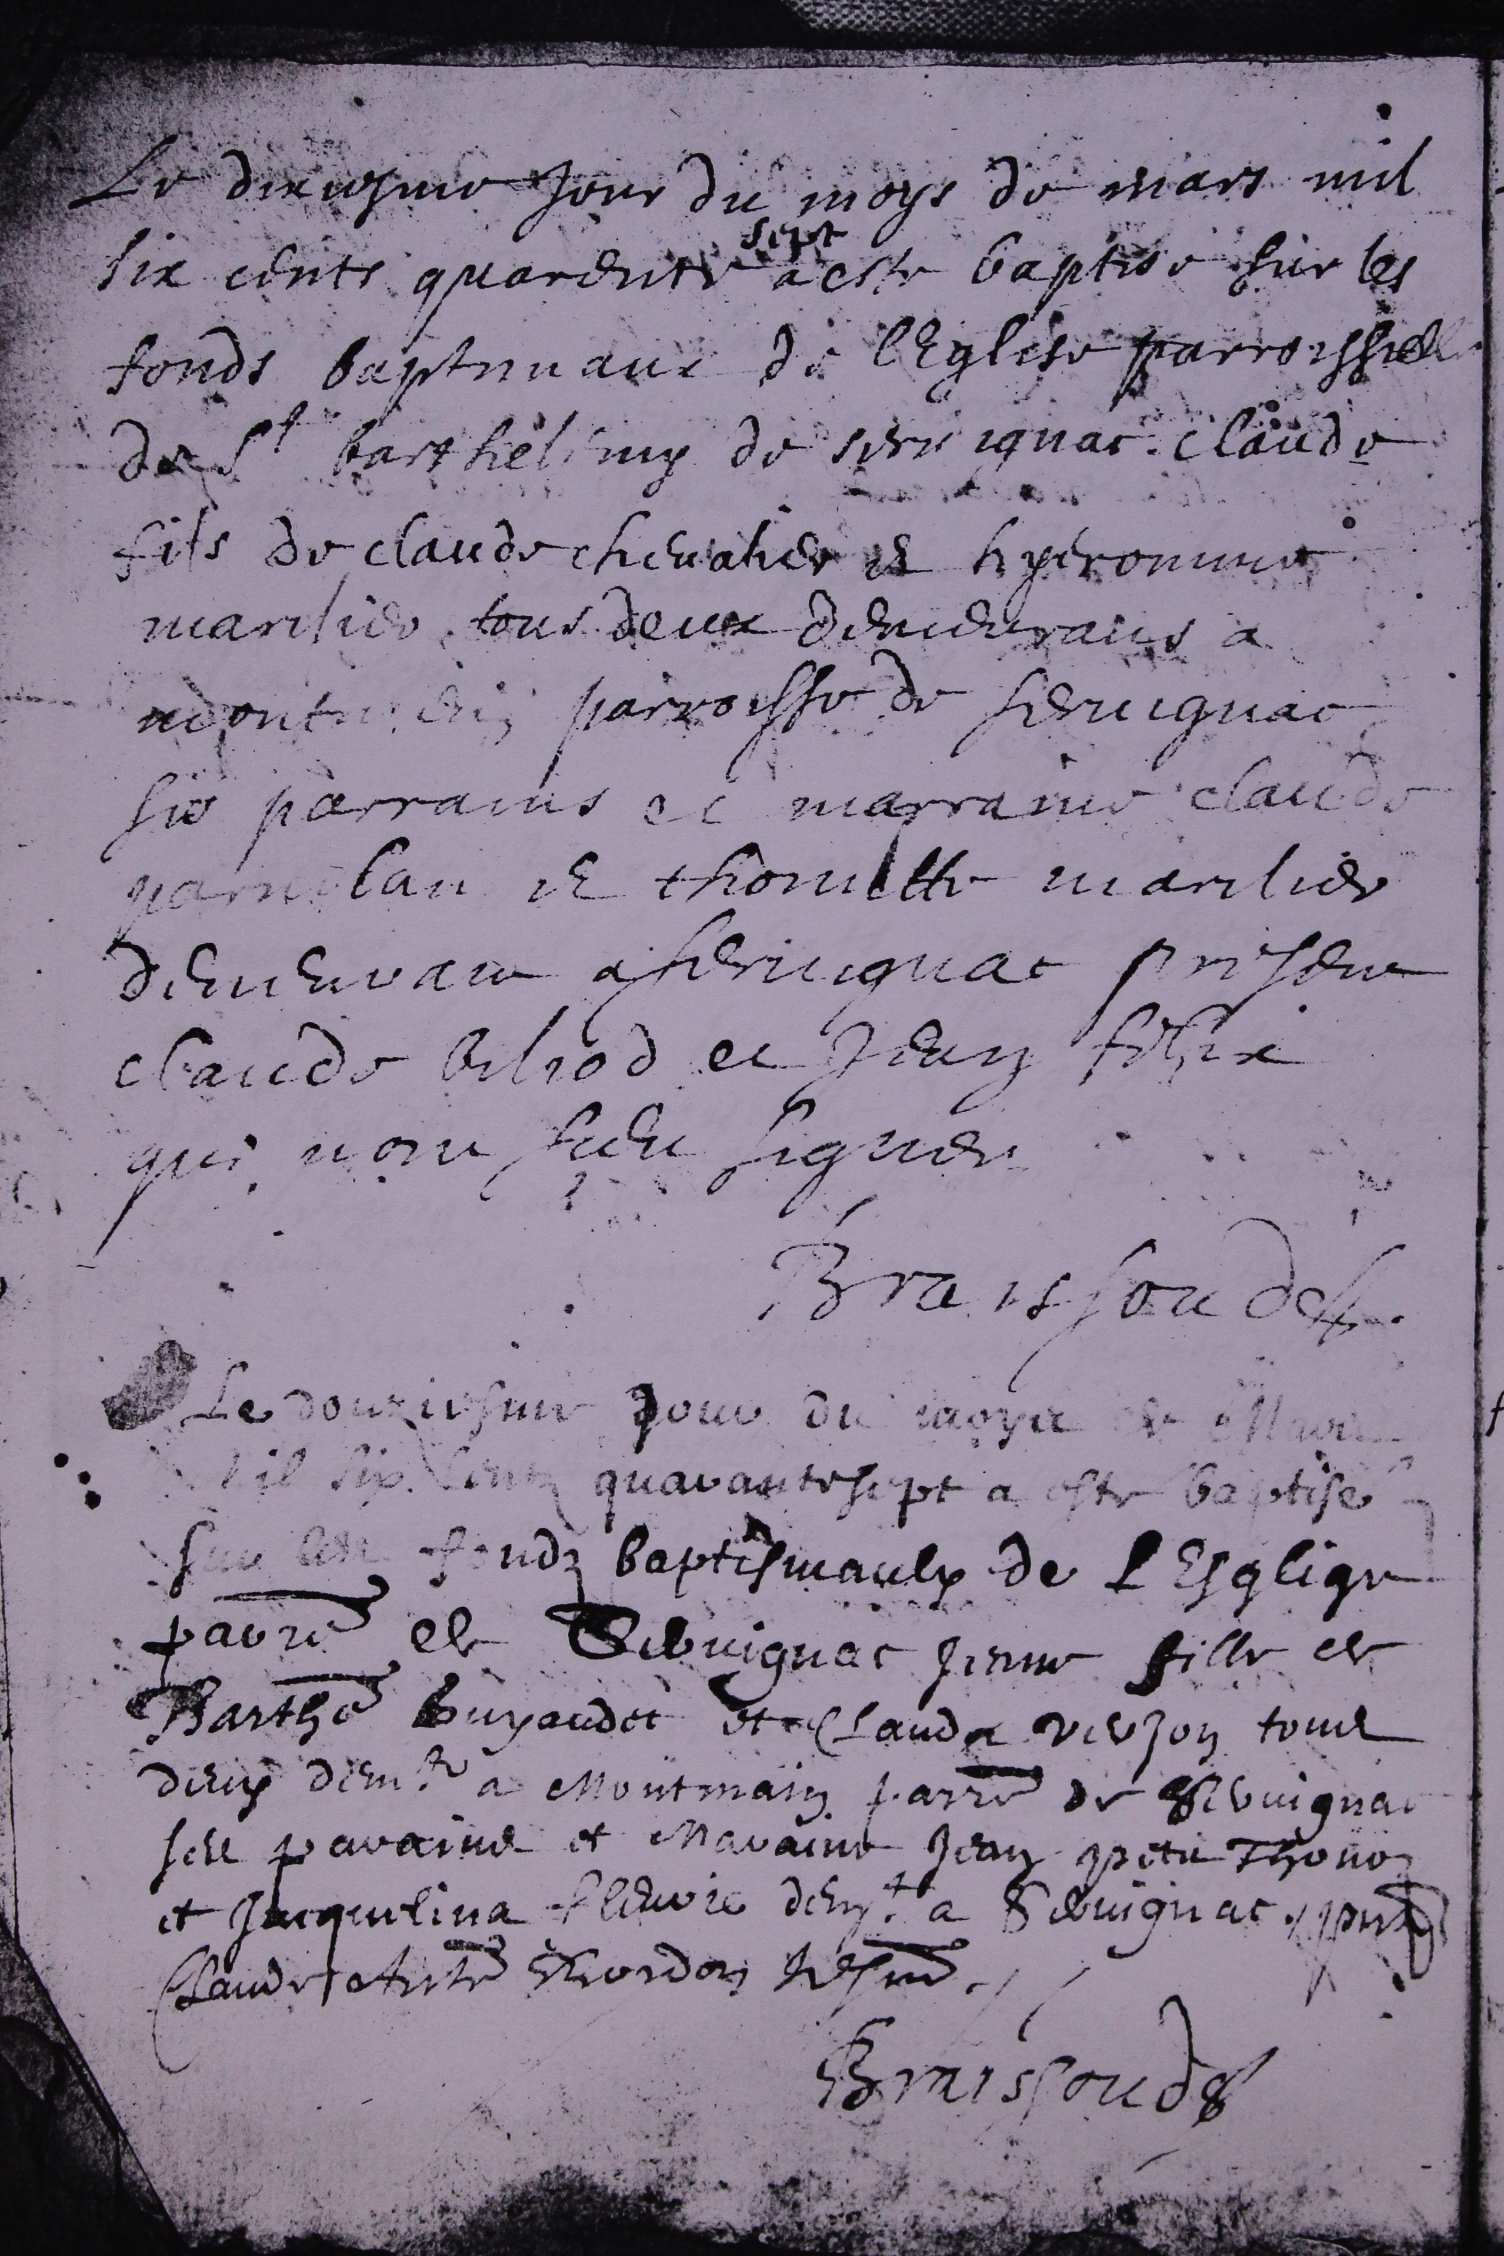 Le dixiesme Jour du moys de mars mil
six cents quarente sept a este baptise sur les
fonds baptismaux de l'Eglise parroissiell
de St barthelemy de servignac Claude
fils de claude chevalier et hyeronime
marilier tous deux demeurans a
parroisse de servignac
ses parrains et marraine claude
et thomette marilier
demeurant a servignac present
claude biliod et Jean felix
qui n'ont sceu signer
Braissoud
Le douziesme Jour du moys de Mars
Mil six Centz quarante sept a este baptise
sur les fondz baptismaulx de L'Esglize
parre de Servignac Jeanne fille de
Barthe Buyaudet et Clauda verjon tous
deux demts a Montmain parre de Servignac
ses parains et Maraine Jean petit Thonon
et Jacquelina fleurie demt a Servignac, pnts
Claude
Braissoud